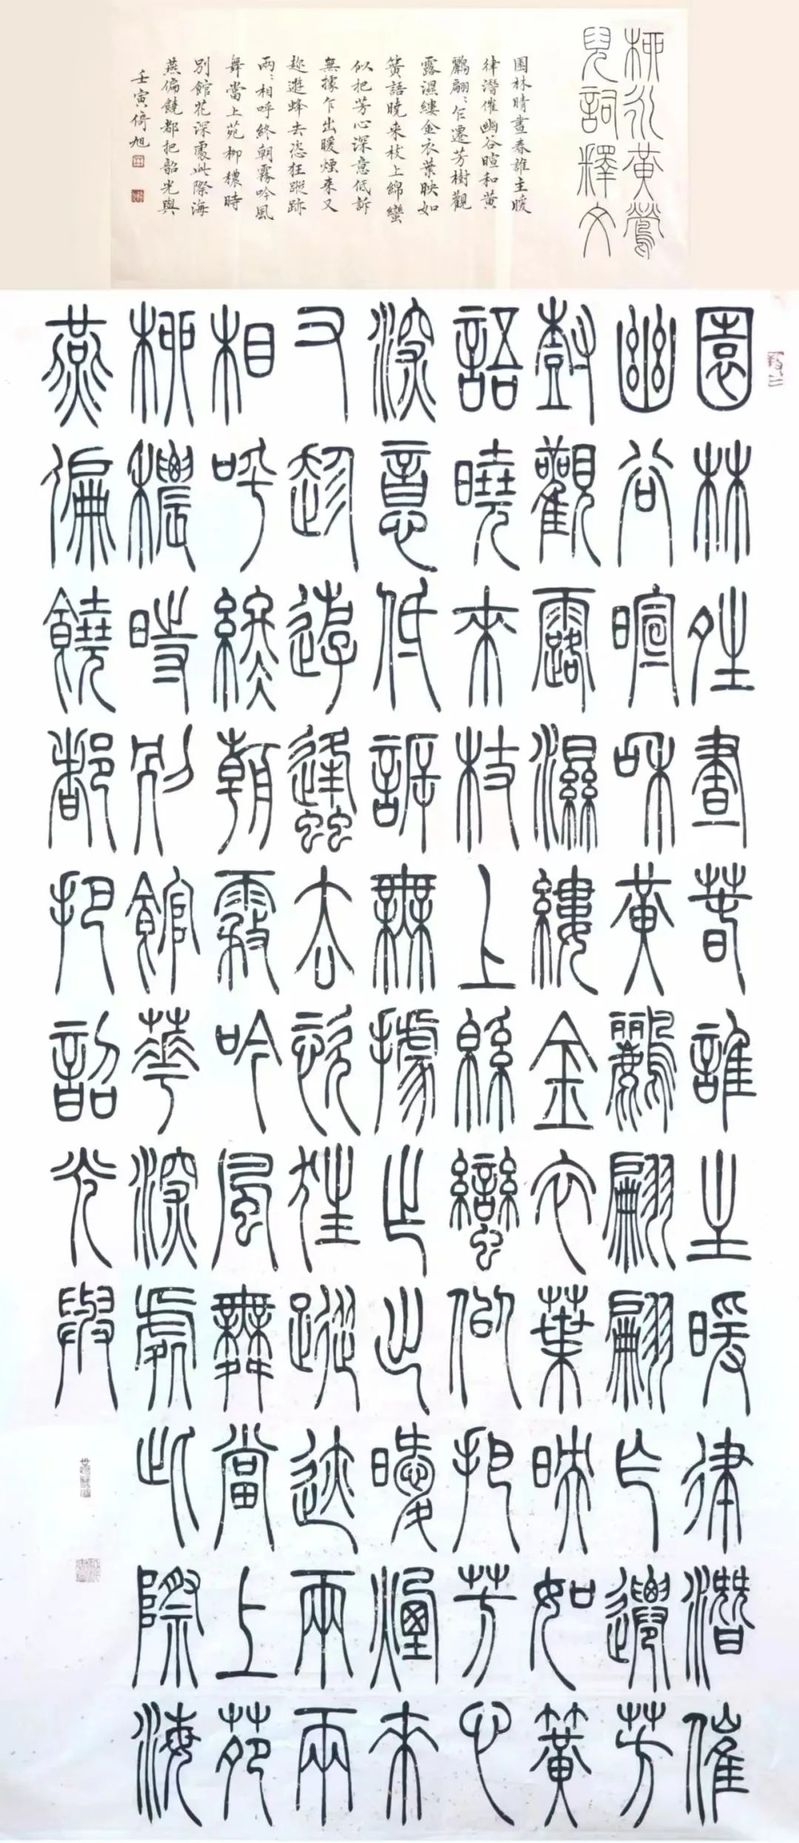 柳永黃鶯
兒詞釋文
園林晴晝春誰主暖
律潛催幽谷暄和黃
鸝翩〻乍遷芳樹觀
露濕縷金衣葉映如
簧語曉來枝上綿蠻
似把芳心深意低訴
無據乍出暖煙來又
趂遊蜂去恣狂蹤跡
兩〻相呼終朝霧吟風
舞當上苑柳穠時
別館花深處此際海
燕偏饒都把韶光與
壬寅倚旭
園林晴晝春誰主暖律潛催
幽谷暄和黃鸝翩翩乍遷芳
樹觀露濕縷金衣葉映如簧
語曉來枝上綿蠻似把芳心
深意低訴無據乍出暖煙來
又趂遊蜂去恣狂蹤跡兩兩
相呼終朝霧吟風舞當上苑
柳穠時別館華深處此際海
燕偏饒都把韶光與